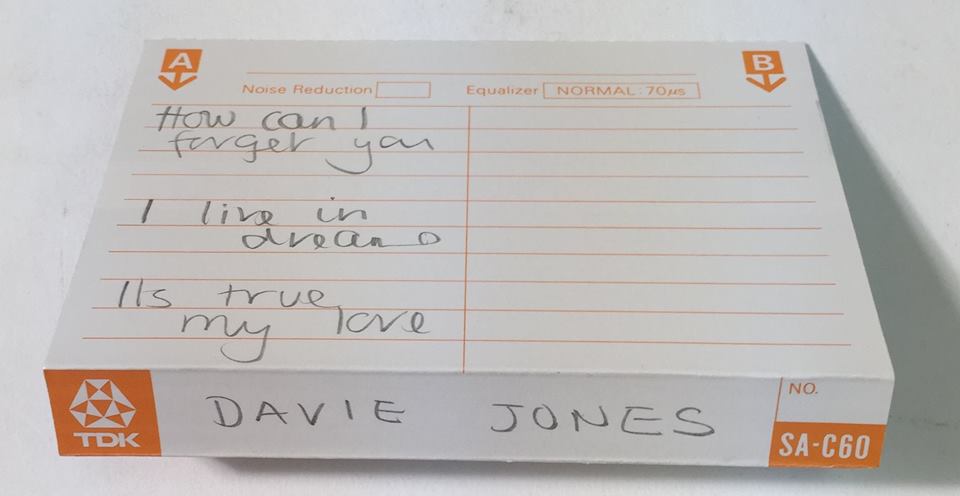 A
B
Noise Reduction
Equalizer NORMAL:70μs
How can I
forget you
I live in
dreams
Its true
my love
TDK
DAVIE JONES
NO.
SA-C60